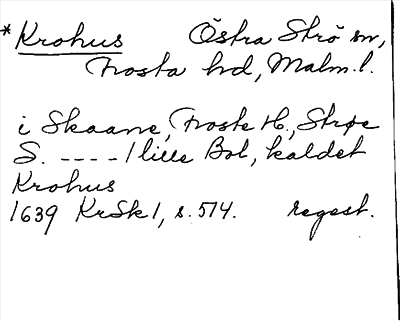 *Krohus Östra Strö sn,
Frosta hd, Malm. l.
i Skaane, Froste H., Strøe
S. ---- 1 lille Bol, kaldet
Krohus
1639 KrSk 1, s. 514. regest.